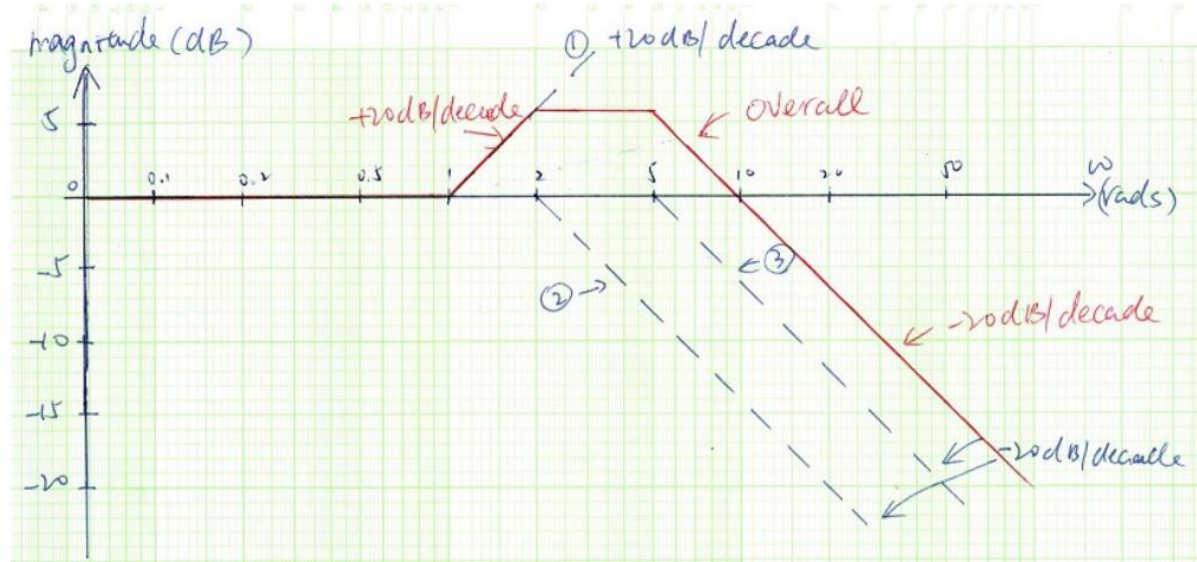 magnitude (dB)
① +20dB/decade
+20dB/decade
overall
5
0
0.1 0.2 0.5 1 2 5 10 20 50 ω
(rads)
-5
③
②
-20dB/decade
-10
-15
-20dB/decade
-20